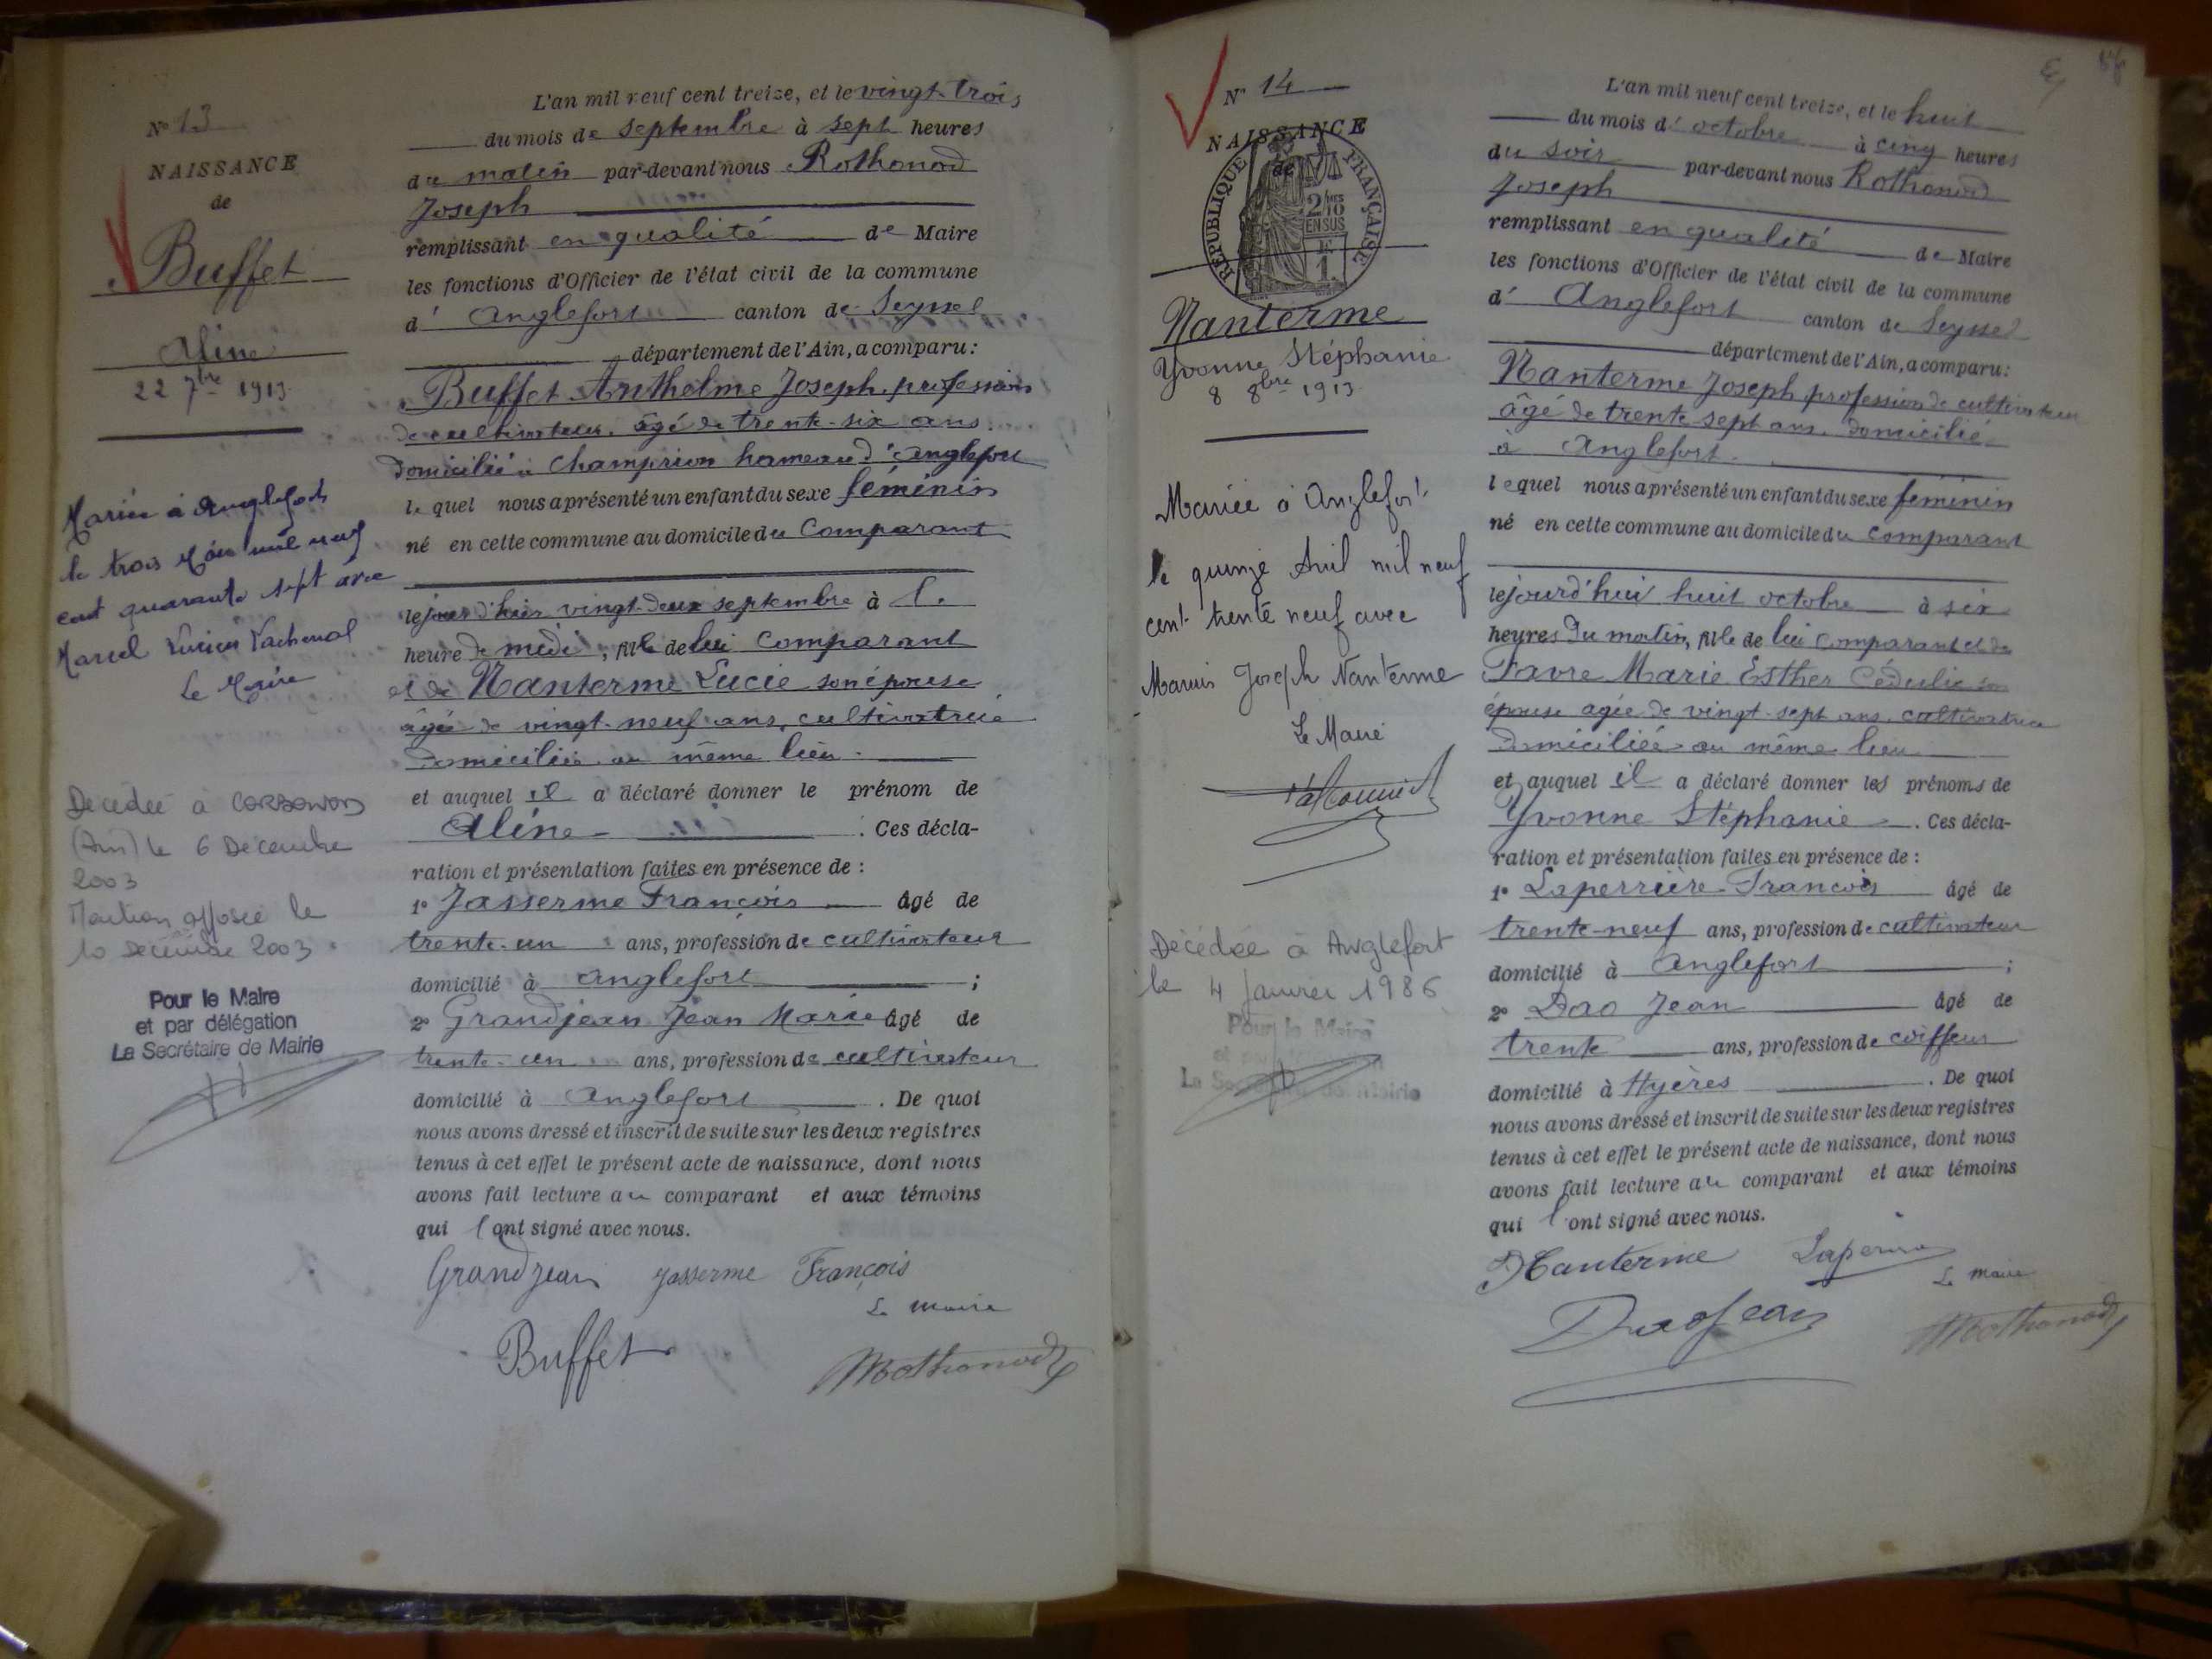 N° 13
NAISSANCE
de
Buffet
Aline
22 7bre 1913
Mariée à Anglefort
le trois Mai mil neuf
cent quarante sept avec
Marcel Lucien Vachenal
Le Maire
Décédée à CORBONOD
(Ain) le 6 Décembre
2003
Mention apposée le
10 Décembre 2003
Pour le Maire
et par délégation
La Secrétaire de Mairie
L'an mil neuf cent treize, et le vingt-trois
du mois de septembre à sept heures
du matin par-devant nous Rothonod
Joseph
remplissant en qualité de Maire
les fonctions d'Officier de l'état civil de la commune
d' Anglefort canton de Seyssel
département de l'Ain, a comparu:
Buffet Anthelme Joseph, profession
de cultivateur, âgé de trente-six ans
domicilié à Champrion hameau d'Anglefort
lequel nous a présenté un enfant du sexe féminin
né en cette commune au domicile du comparant
le jour d'hier vingt-deux septembre à l'
heure de midi, fille de lui comparant
et de Nanterme Lucie son épouse
âgée de vingt-neuf ans, cultivatrice
domiciliée au même lieu
et auquel il a déclaré donner le prénom de
Aline . Ces décla-
ration et présentation faites en présence de :
1° Jasserme François âgé de
trente-un ans, profession de cultivateur
domicilié à Anglefort ;
2° Grandjean Jean Marie âgé de
trente-un ans, profession de cultivateur
domicilié à Anglefort . De quoi
nous avons dressé et inscrit de suite sur les deux registres
tenus à cet effet le présent acte de naissance, dont nous
avons fait lecture au comparant et aux témoins
qui l'ont signé avec nous.
Grandjean Jasserme François
Le Maire
Buffet Rothonod
N° 14
NAISSANCE
de
RÉPUBLIQUE FRANÇAISE
2/10
EN SUS
1
Nanterme
Yvonne Stéphanie
8 8bre 1913
Mariée à Anglefort
le quinze Avril mil neuf
cent trente neuf avec
Marius Joseph Nanterme
Le Maire
Décédée à Anglefort
le 4 Janvier 1986
Pour le Maire
L'an mil neuf cent treize, et le huit
du mois d'octobre à cinq heures
du soir par-devant nous Rothonod
Joseph
remplissant en qualité de Maire
les fonctions d'Officier de l'état civil de la commune
d' Anglefort canton de Seyssel
département de l'Ain, a comparu:
Nanterme Joseph profession de cultivateur
âgé de trente-sept ans, domicilié
à Anglefort.
lequel nous a présenté un enfant du sexe féminin
né en cette commune au domicile du comparant
lejourd'hui huit octobre à six
heures du matin, fille de lui comparant et de
Favre Marie Esther Cédulie son
épouse âgée de vingt-sept ans, cultivatrice
domiciliée au même lieu
et auquel il a déclaré donner les prénoms de
Yvonne Stéphanie . Ces décla-
ration et présentation faites en présence de :
1° Laperrière François âgé de
trente-neuf ans, profession de cultivateur
domicilié à Anglefort ;
2° Dao Jean âgé de
trente ans, profession de coiffeur
domicilié à Hyères . De quoi
nous avons dressé et inscrit de suite sur les deux registres
tenus à cet effet le présent acte de naissance, dont nous
avons fait lecture au comparant et aux témoins
qui l'ont signé avec nous.
Nanterme
Le Maire
Dao Jean Rothonod